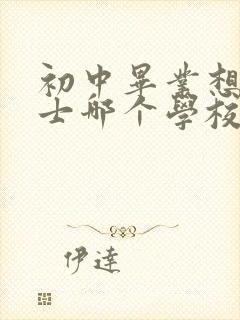 初中畢業想
士哪个學校
伊達